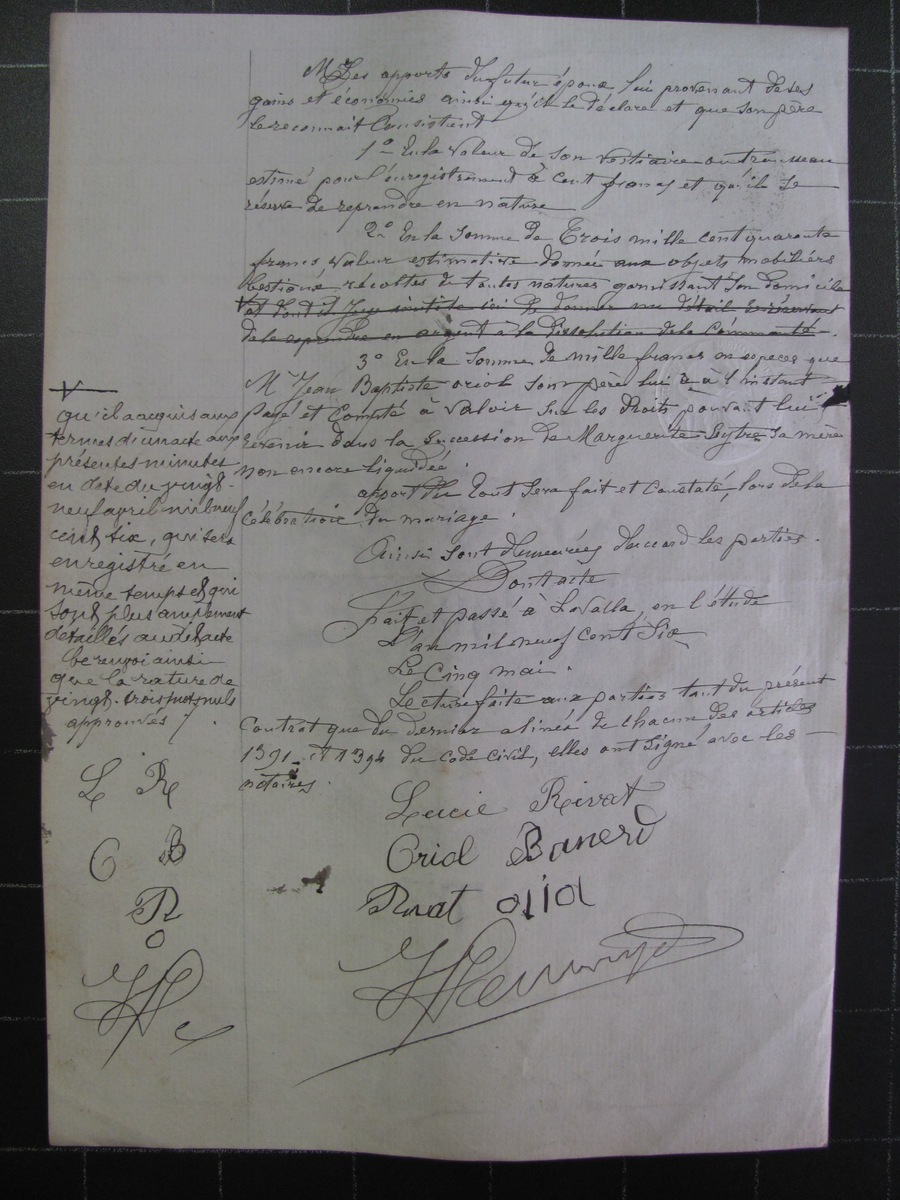 Les apports du futur époux lui provenant de ses
gains et économies ainsi qu'il le déclare et que son père
le reconnait Consistent
1º En la valeur de son vestiaire ou trousseau
estimé pour l'enregistrement à cent francs et qu'il se
réserve de reprendre en nature
2º En la somme de Trois mille cent quarante
francs, valeur estimative donnée aux objets mobiliers
bestiaux, récoltes de toutes natures garnissant son domicile
et dont il juge inutile ici de donner un détail se réservant
de le reprendre en argent à la Dissolution de la Communauté.
3º En la somme de mille francs en espèces que
Mr Jean Baptiste oriol son père lui a à l'instant
Payé et Compté à valoir sur les Droits pouvant lui
revenir dans la succession de Marguerite sa mère
non encore liquidée.
apport du tout sera fait et Constaté, lors de la
célébration du mariage.
Ainsi sont demeurées d'accord les parties.
Dont acte
Fait et passé à LaValla, en l'étude
L'an mil neuf cent Six
Le Cinq mai.
Lecture faite aux parties tant du présent
Contrat que du dernier alinéa de chacun des articles
1391 et 1394 du code civil, elles ont signé avec les
notaires.
Lucie Rivat
Oriol
Rivat oriol
V
qu'il a acquis aux
termes d'un acte aux
présentes minutes
en date du vingt-
neuf avril mil neuf
cent six, qui sera
enregistré en
même temps et qui
sont plus amplement
détaillés au dit acte
ce renvoi ainsi
que la rature de
vingt-trois mots nuls
approuvés
L R
O B
R
O